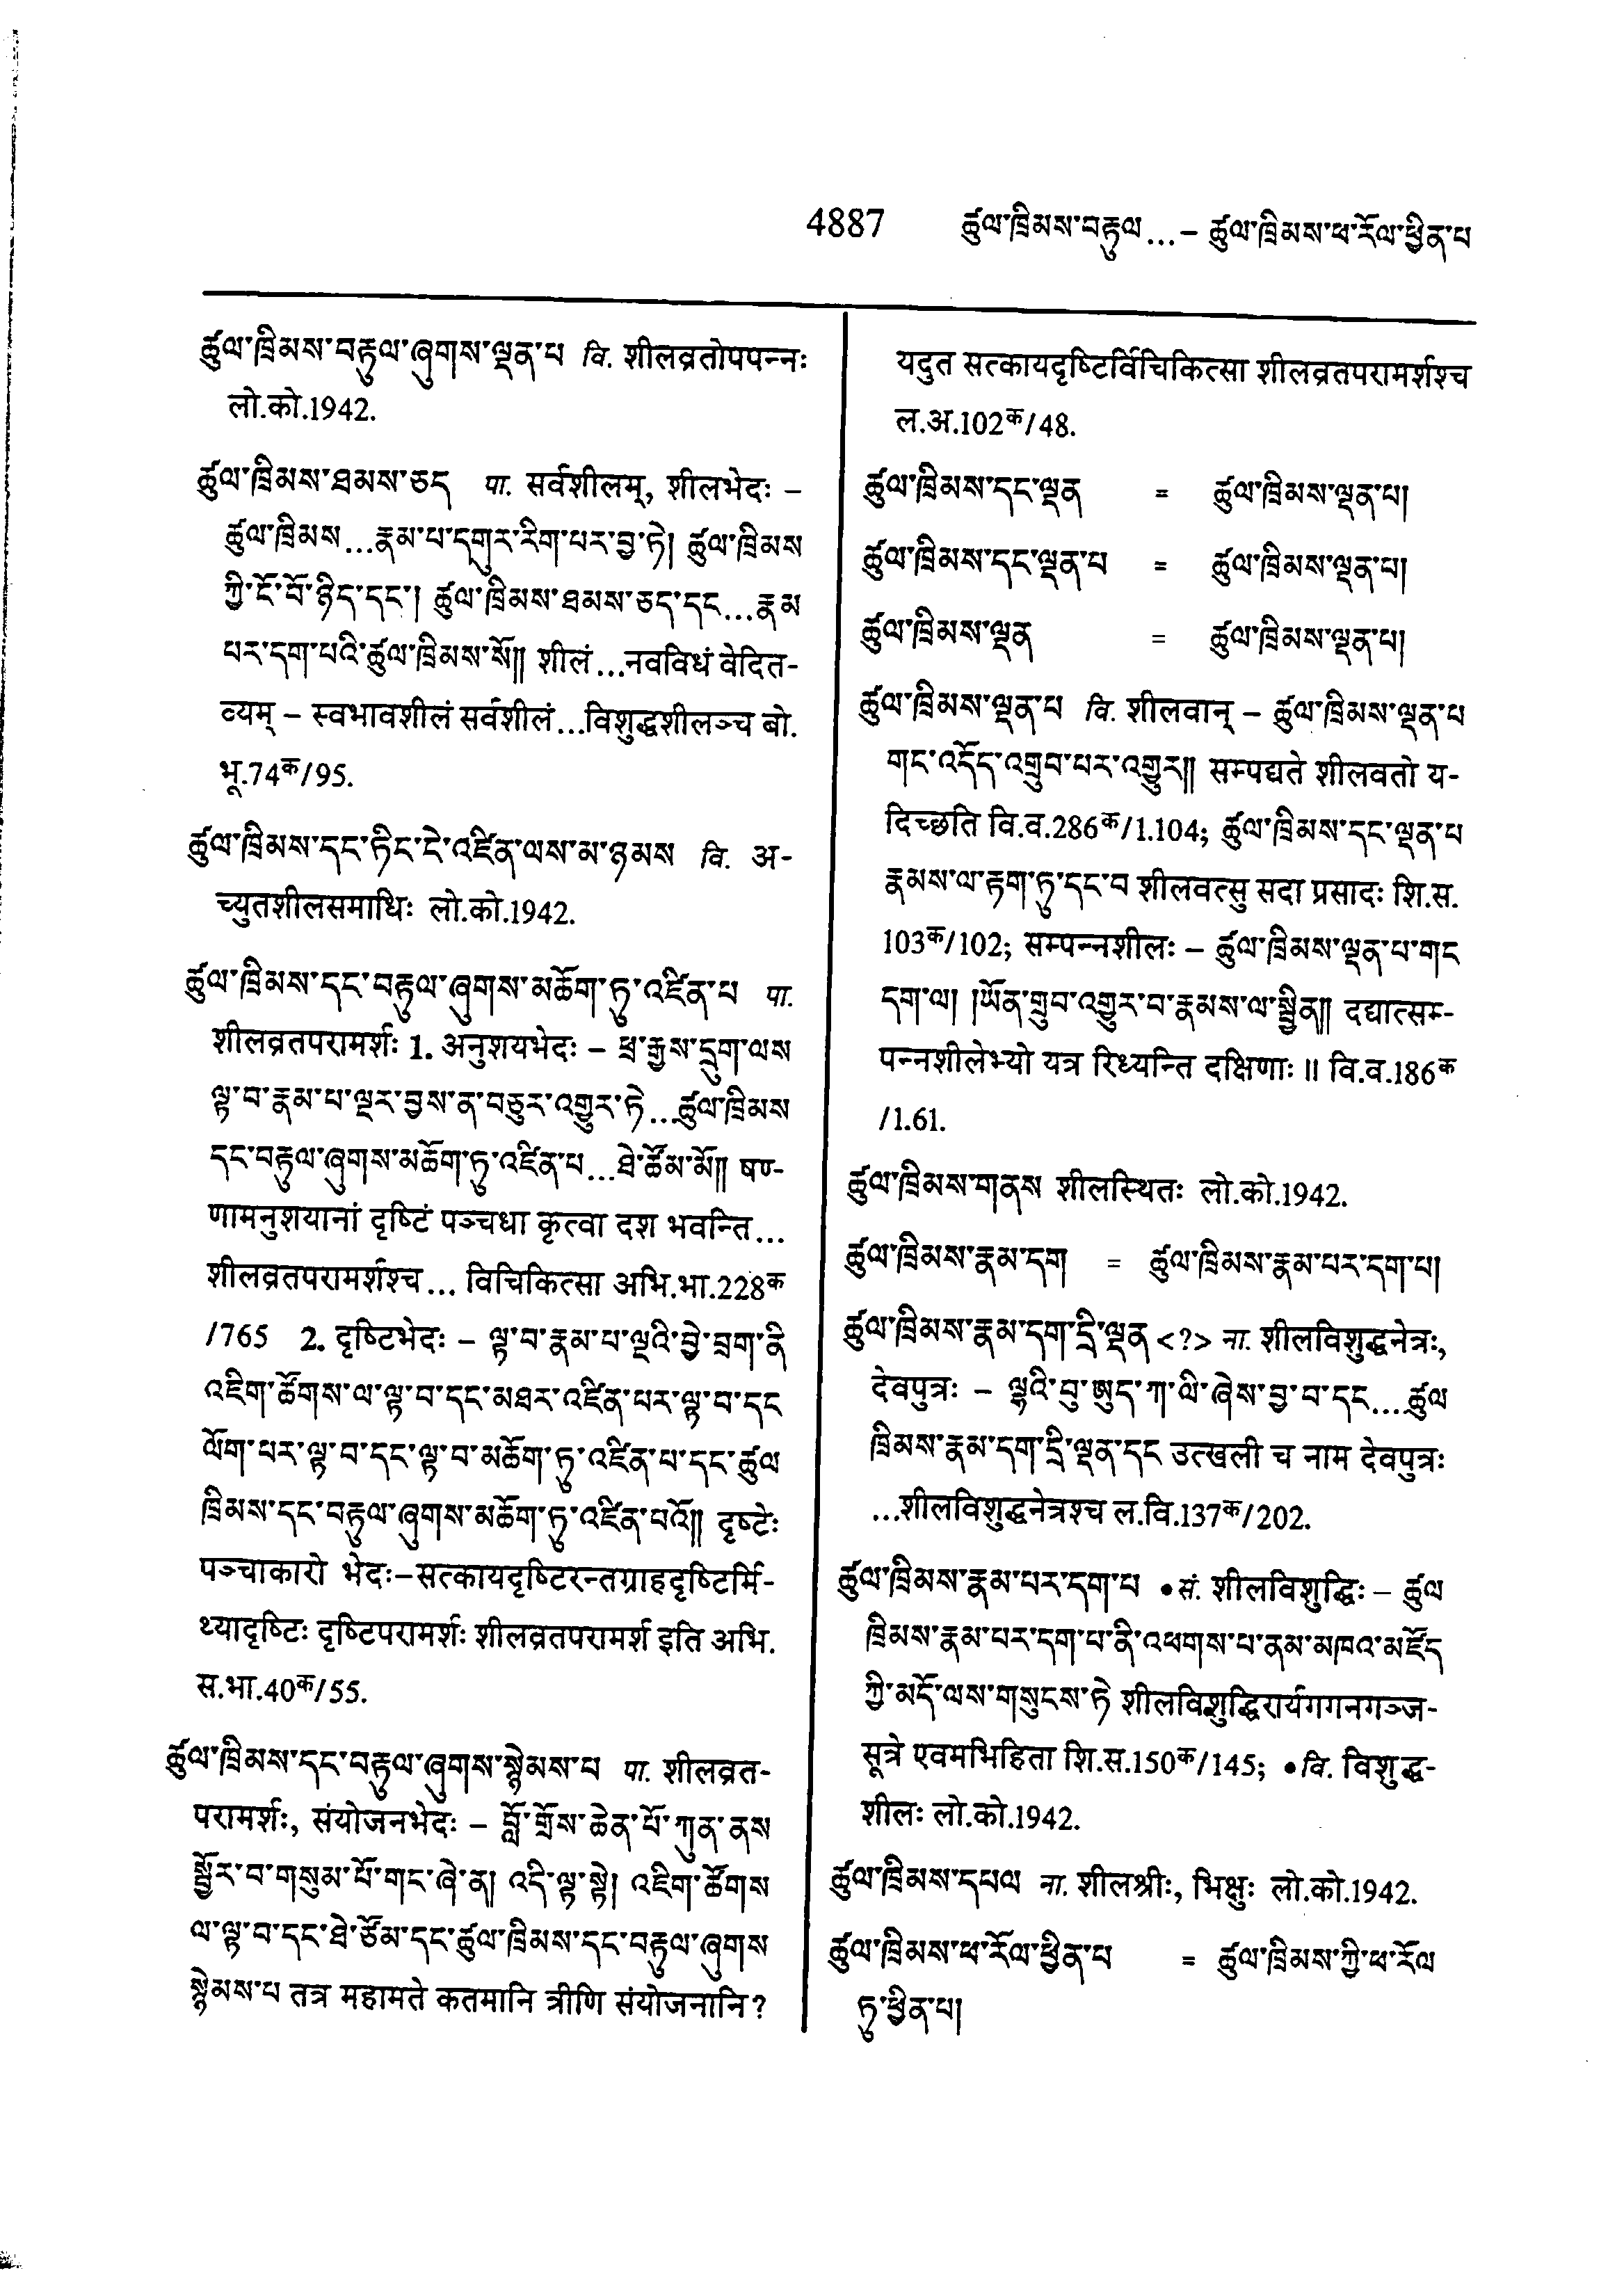 4887 ཚུལ་ཁྲིམས་བརྟུལ...– ཚུལ་ཁྲིམས་ཕ་རོལ་ཕྱིན་པ
ཚུལ་ཁྲིམས་བརྟུལ་ཞུགས་ལྡན་པ वि. शीलव्रतोपपन्नः
लो.को.1942.
ཚུལ་ཁྲིམས་ཐམས་ཅད पा. सर्वशीलम्, शीलभेदः –
ཚུལ་ཁྲིམས...རྣམ་པ་དགུར་རིག་པར་བྱ་ཏེ། ཚུལ་ཁྲིམས
ཀྱི་ངོ་བོ་ཉིད་དང་། ཚུལ་ཁྲིམས་ཐམས་ཅད་དང...རྣམ
པར་དག་པའི་ཚུལ་ཁྲིམས་སོ།། शीलं...नवविधं वेदित-
व्यम् – स्वभावशीलं सर्वशीलं...विशुद्धशीलञ्च बो.
भू.74क/95.
ཚུལ་ཁྲིམས་དང་ཏིང་ངེ་འཛིན་ལས་མ་ཉམས वि. अ-
च्युतशीलसमाधिः लो.को.1942.
ཚུལ་ཁྲིམས་དང་བརྟུལ་ཞུགས་མཆོག་ཏུ་འཛིན་པ पा.
शीलव्रतपरामर्शः 1. अनुशयभेदः – ཕྲ་རྒྱས་དྲུག་ལས
ལྟ་བ་རྣམ་པ་ལྔར་བྱས་ན་བཅུར་འགྱུར་ཏེ...ཚུལ་ཁྲིམས
དང་བརྟུལ་ཞུགས་མཆོག་ཏུ་འཛིན་པ...ཐེ་ཚོམ་མོ།། षण-
णामनुशयानां दृष्टिं पञ्चधा कृत्वा दश भवन्ति...
शीलव्रतपरामर्शश्च... विचिकित्सा अभि.भा.228क
/765 2. दृष्टिभेदः – ལྟ་བ་རྣམ་པ་ལྔའི་བྱེ་བྲག་ནི
འཇིག་ཚོགས་ལ་ལྟ་བ་དང་མཐར་འཛིན་པར་ལྟ་བ་དང
ལོག་པར་ལྟ་བ་དང་ལྟ་བ་མཆོག་ཏུ་འཛིན་པ་དང་ཚུལ
ཁྲིམས་དང་བརྟུལ་ཞུགས་མཆོག་ཏུ་འཛིན་པའོ།། दृष्टेः
पञ्चाकारो भेदः–सत्कायदृष्टिरन्तग्राहदृष्टिर्मि-
थ्यादृष्टिः दृष्टिपरामर्शः शीलव्रतपरामर्श इति अभि.
स.भा.40क/55.
ཚུལ་ཁྲིམས་དང་བརྟུལ་ཞུགས་སྙེམས་པ पा. शीलव्रत-
परामर्शः, संयोजनभेदः – བློ་གྲོས་ཆེན་པོ་ཀུན་ནས
སྦྱོར་བ་གསུམ་པོ་གང་ཞེ་ན། འདི་ལྟ་སྟེ། འཇིག་ཚོགས
ལ་ལྟ་བ་དང་ཐེ་ཙོམ་དང་ཚུལ་ཁྲིམས་དང་བརྟུལ་ཞུགས
སྙེམས་པ तत्र महामते कतमानि त्रीणि संयोजनानि?
यदुत सत्कायदृष्टिर्विचिकित्सा शीलव्रतपरामर्शश्च
ल.अ.102क/48.
ཚུལ་ཁྲིམས་དང་ལྡན = ཚུལ་ཁྲིམས་ལྡན་པ།
ཚུལ་ཁྲིམས་དང་ལྡན་པ = ཚུལ་ཁྲིམས་ལྡན་པ།
ཚུལ་ཁྲིམས་ལྡན = ཚུལ་ཁྲིམས་ལྡན་པ།
ཚུལ་ཁྲིམས་ལྡན་པ वि. शीलवान् – ཚུལ་ཁྲིམས་ལྡན་པ
གང་འདོད་འགྲུབ་པར་འགྱུར།། सम्पद्यते शीलवतो य-
दिच्छति वि.व.286क/1.104; ཚུལ་ཁྲིམས་དང་ལྡན་པ
རྣམས་ལ་རྟག་ཏུ་དང་བ शीलवत्सु सदा प्रसादः शि.स.
103क/102; सम्पन्नशीलः – ཚུལ་ཁྲིམས་ལྡན་པ་གང
དག་ལ། །ཡོན་གྲུབ་འགྱུར་བ་རྣམས་ལ་སྦྱིན།། दद्यात्सम-
पन्नशीलेभ्यो यत्र रिध्यन्ति दक्षिणाः ॥ वि.व.186क
/1.61.
ཚུལ་ཁྲིམས་གནས शीलस्थितः लो.को.1942.
ཚུལ་ཁྲིམས་རྣམ་དག = ཚུལ་ཁྲིམས་རྣམ་པར་དག་པ།
ཚུལ་ཁྲིམས་རྣམ་དག་དྲི་ལྡན <?> ना. शीलविशुद्धनेत्रः,
देवपुत्रः – ལྷའི་བུ་ཨུད་ཀ་ལི་ཞེས་བྱ་བ་དང....ཚུལ
ཁྲིམས་རྣམ་དག་དྲི་ལྡན་དང उत्खली च नाम देवपुत्रः
...शीलविशुद्धनेत्रश्च ल.वि.137क/202.
ཚུལ་ཁྲིམས་རྣམ་པར་དག་པ •सं. शीलविशुद्धिः – ཚུལ
ཁྲིམས་རྣམ་པར་དག་པ་ནི་འཕགས་པ་ནམ་མཁའ་མཛོད
ཀྱི་མདོ་ལས་གསུངས་ཏེ शीलविशुद्धिरार्यगगनगञ्ज-
सूत्रे एवमभिहिता शि.स.150क/145; •वि. विशुद्ध-
शीलः लो.को.1942.
ཚུལ་ཁྲིམས་དཔལ ना. शीलश्रीः, भिक्षुः लो.को.1942.
ཚུལ་ཁྲིམས་ཕ་རོལ་ཕྱིན་པ = ཚུལ་ཁྲིམས་ཀྱི་ཕ་རོལ
ཏུ་ཕྱིན་པ།